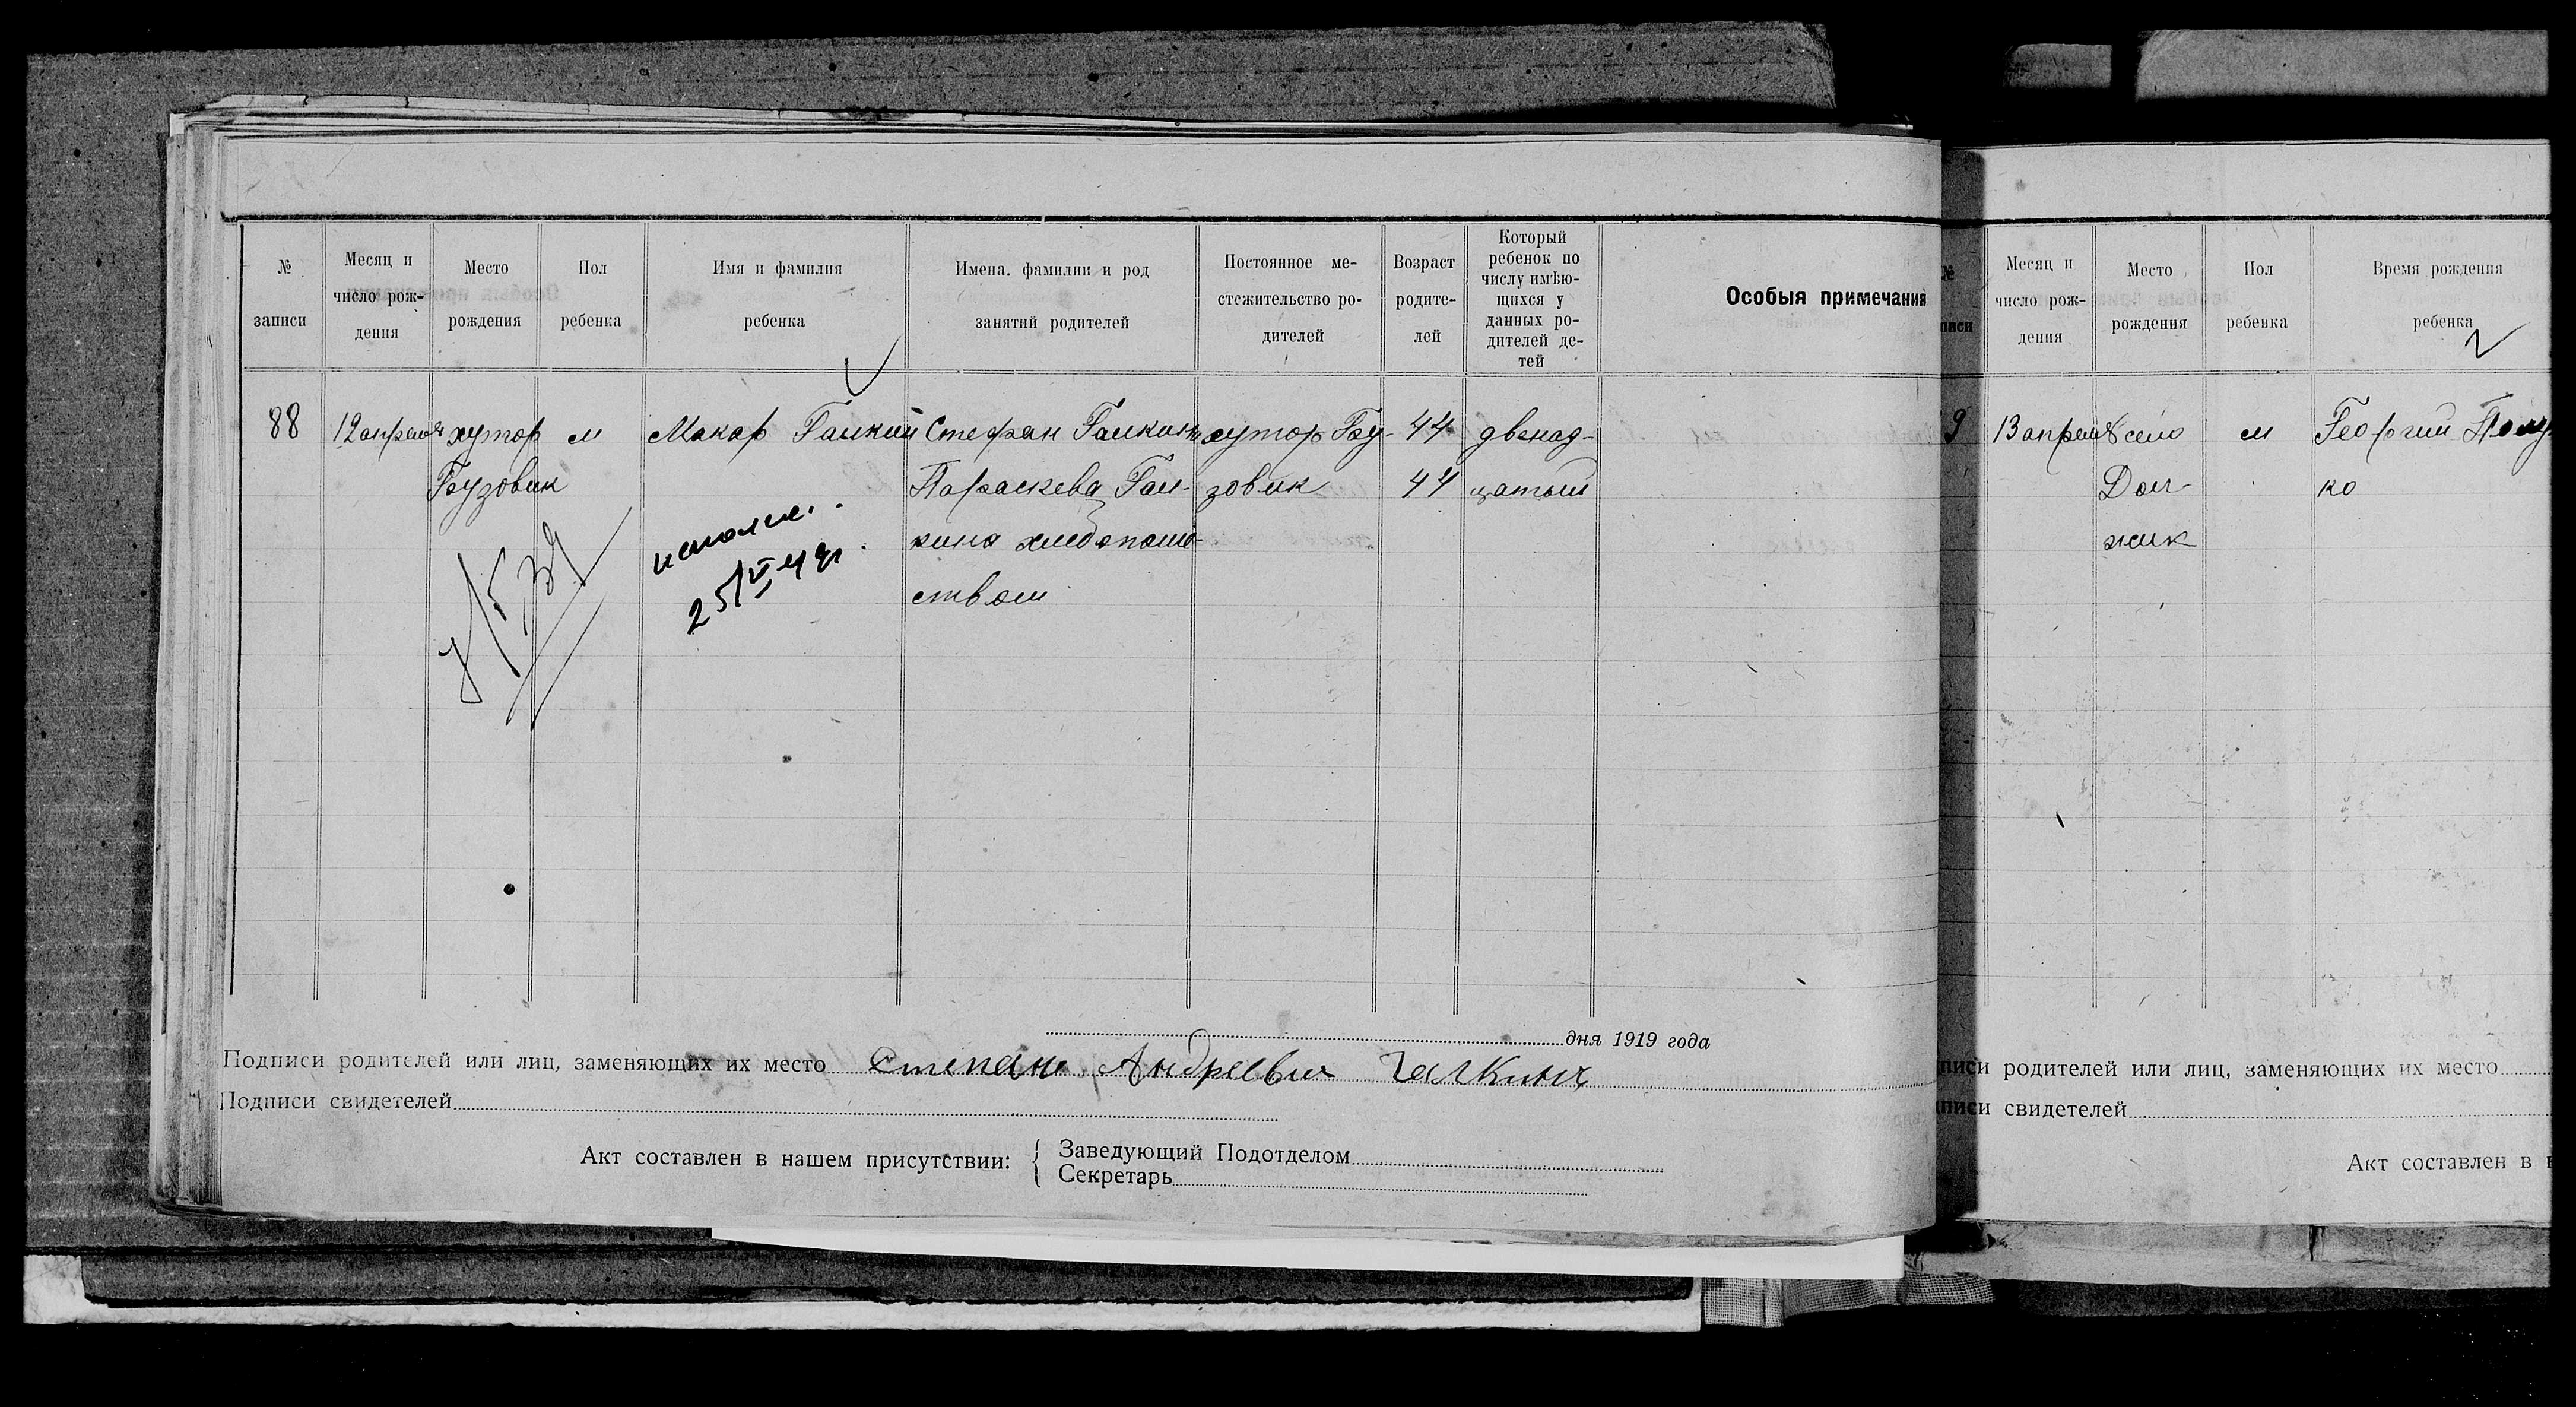 № записи
Месяц и число рождения
Место рождения
Пол ребенка
Имя и фамилия ребенка
Имена, фамилии и род занятий родителей
Постоянное местежительство родителей
Возраст родителей
Который ребенок по числу имѣющихся у данных родителей детей
Особыя примечания
88
12 апреля
хутор
Бузовик
м
Макар Галкин
Стефан Галкин
Параскева Гал-
кина хлебопаше-
ством
хутор Бу-
зовик
44
44
двенад-
цатый
исполн.
25/VI
дня 1919 года
Подписи родителей или лиц, заменяющих их место Степанъ Андреевич Галкинъ
Подписи свидетелей
Акт составлен в нашем присутствии:
Заведующий Подотделом
Секретарь
№
писи
Месяц и число рож-дения
Место рождения
Пол ребенка
Время рождения ребенка
9
13 апреля
село
Дол-
жик
м
Георгий
ко
писи родителей или лиц, заменяющих их место
писи свидетелей
Акт составлен в